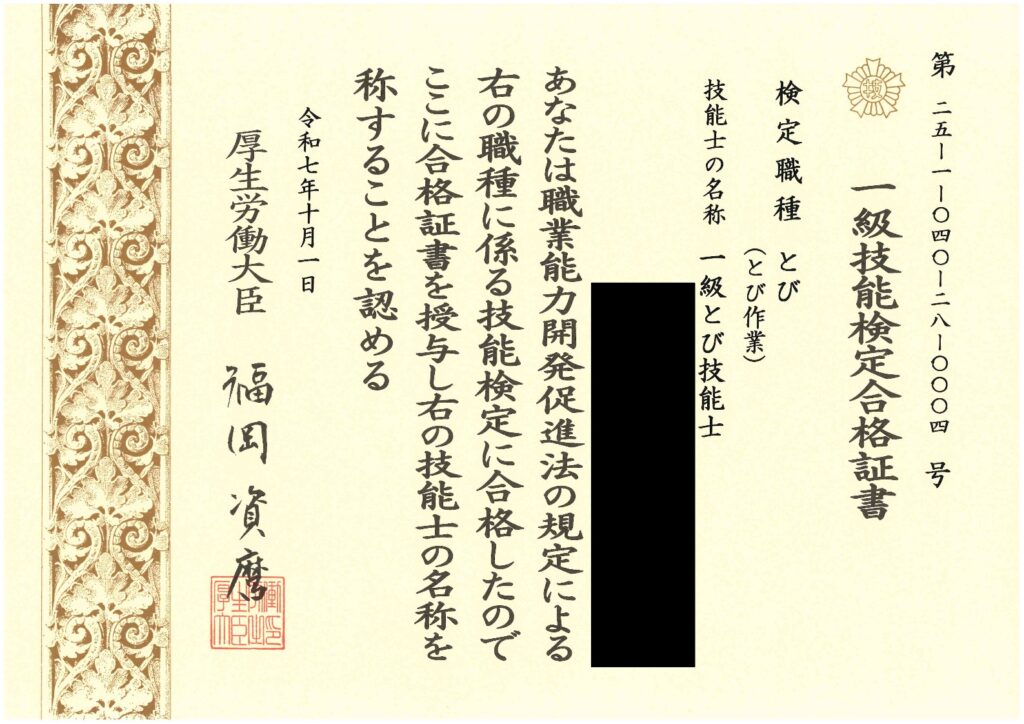 第 二五ー一ー〇四〇ー二八ー〇〇〇四 号
一級技能検定合格証書
検定職種 とび
（とび作業）
技能士の名称 一級とび技能士
あなたは職業能力開発促進法の規定による
右の職種に係る技能検定に合格したので
ここに合格証書を授与し右の技能士の名称を
称することを認める
令和七年十月一日
厚生労働大臣 福岡 資麿